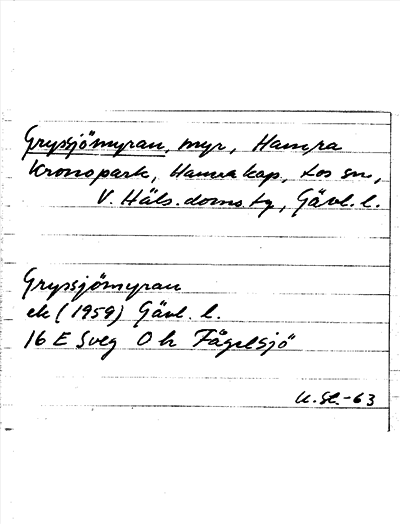 Gryssjömyran, myr, Hamra
Kronopark, Hamra kap., Los sn,
V. Häls. doms. tg, Gävl. l.
Gryssjömyran
ek (1959) Gävl. l.
16 E Sveg O h Fågelsjö
U. Sl.-63